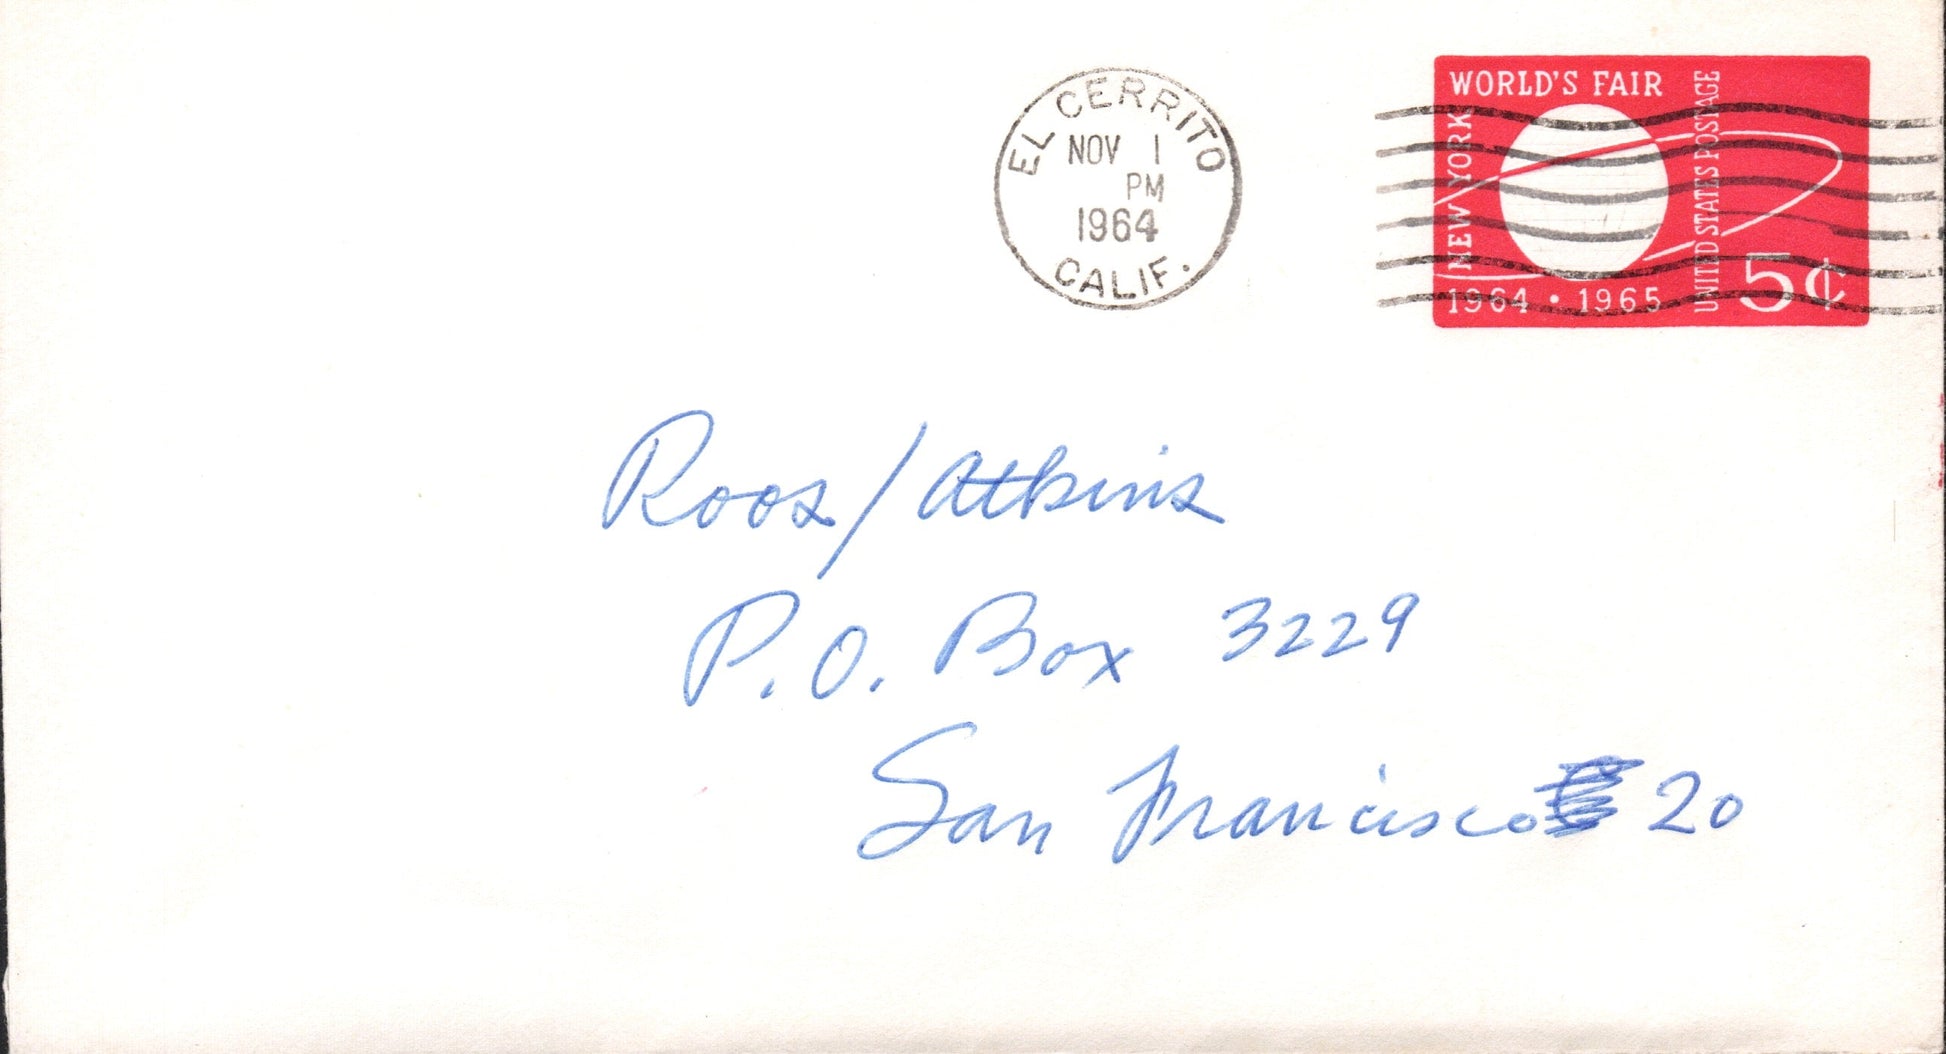 EL CERRITO
NOV 1
PM
1964
CALIF.
WORLD'S FAIR
NEW YORK
UNITED STATES POSTAGE
1964 · 1965
5¢
Roos/Atkins
P.O. Box 3229
San Francisco 20